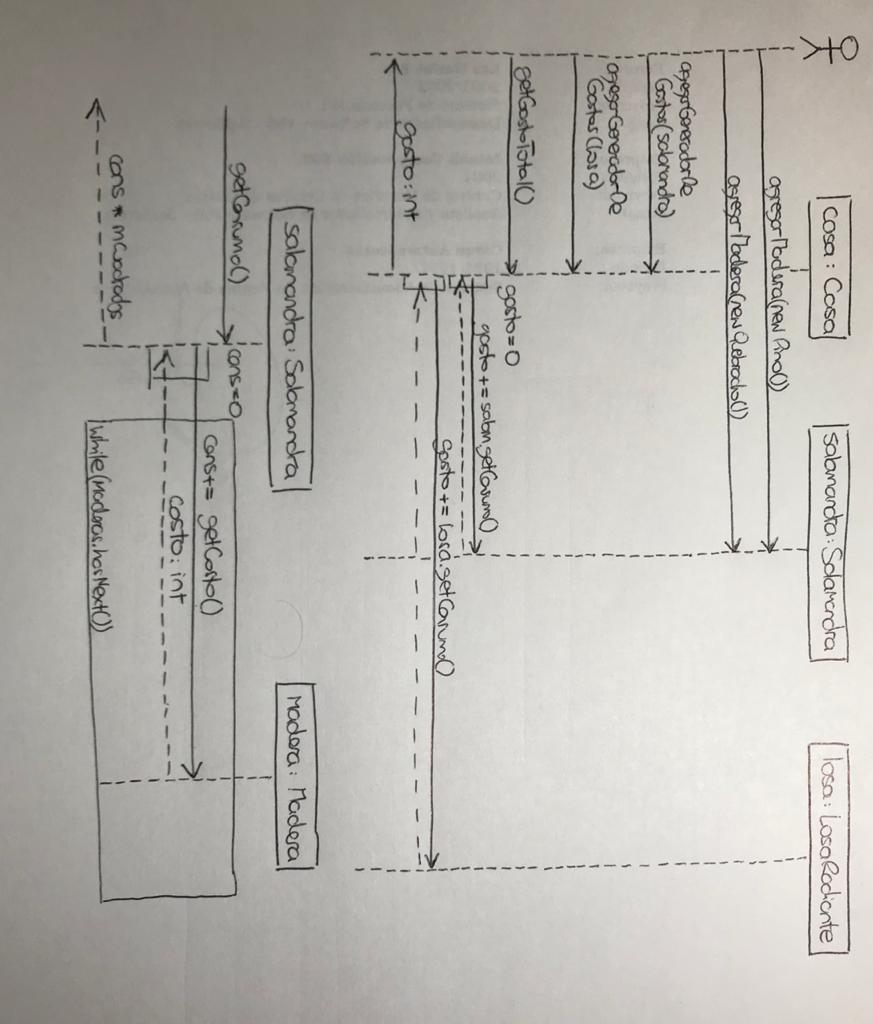 casa : Casa
salamandra : Salamandra
losa : LosaRadiante
agregarMadera(new Pino())
agregarMadera(new Quebracho())
agregarGeneradorDe
Gastos(salamandra)
agregarGeneradorDe
Gastos(losa)
getGastoTotal()
gasto = 0
gasto += salam.getConsumo()
gasto += losa.getConsumo()
gasto : int
salamandra : Salamandra
Madera : Madera
getConsumo()
cons = 0
cons += getCosto()
costo : int
cons * mCuadrados
while(maderas.hasNext())